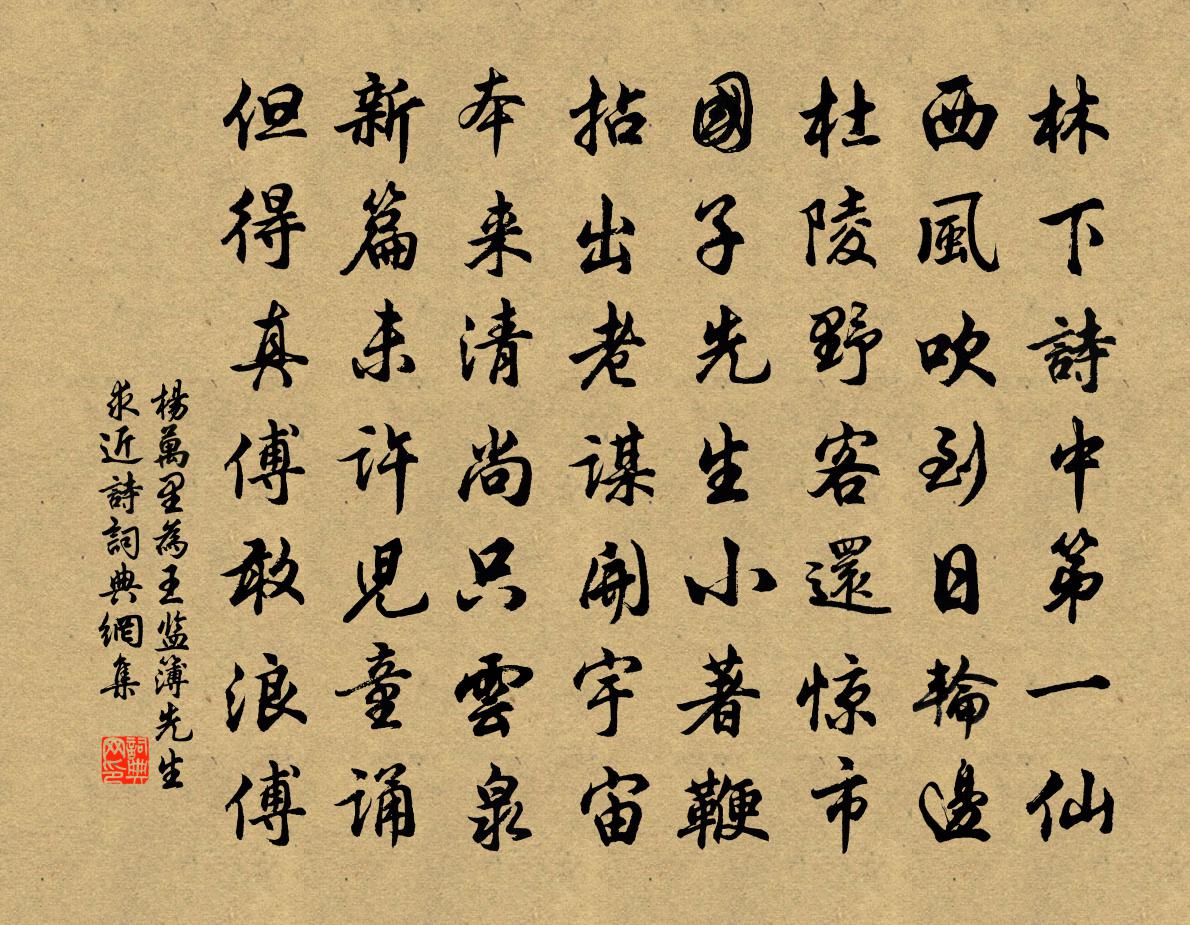 林下詩中第一仙
西風吹到日輪邊
杜陵野客還惊市
國子先生小著鞭
拈出老謀開宇宙
本来清尚只雲泉
新篇未許児童誦
但得真傅敢浪傅
楊萬里為王监簿先生
求近詩詞典網集
詞典
网印